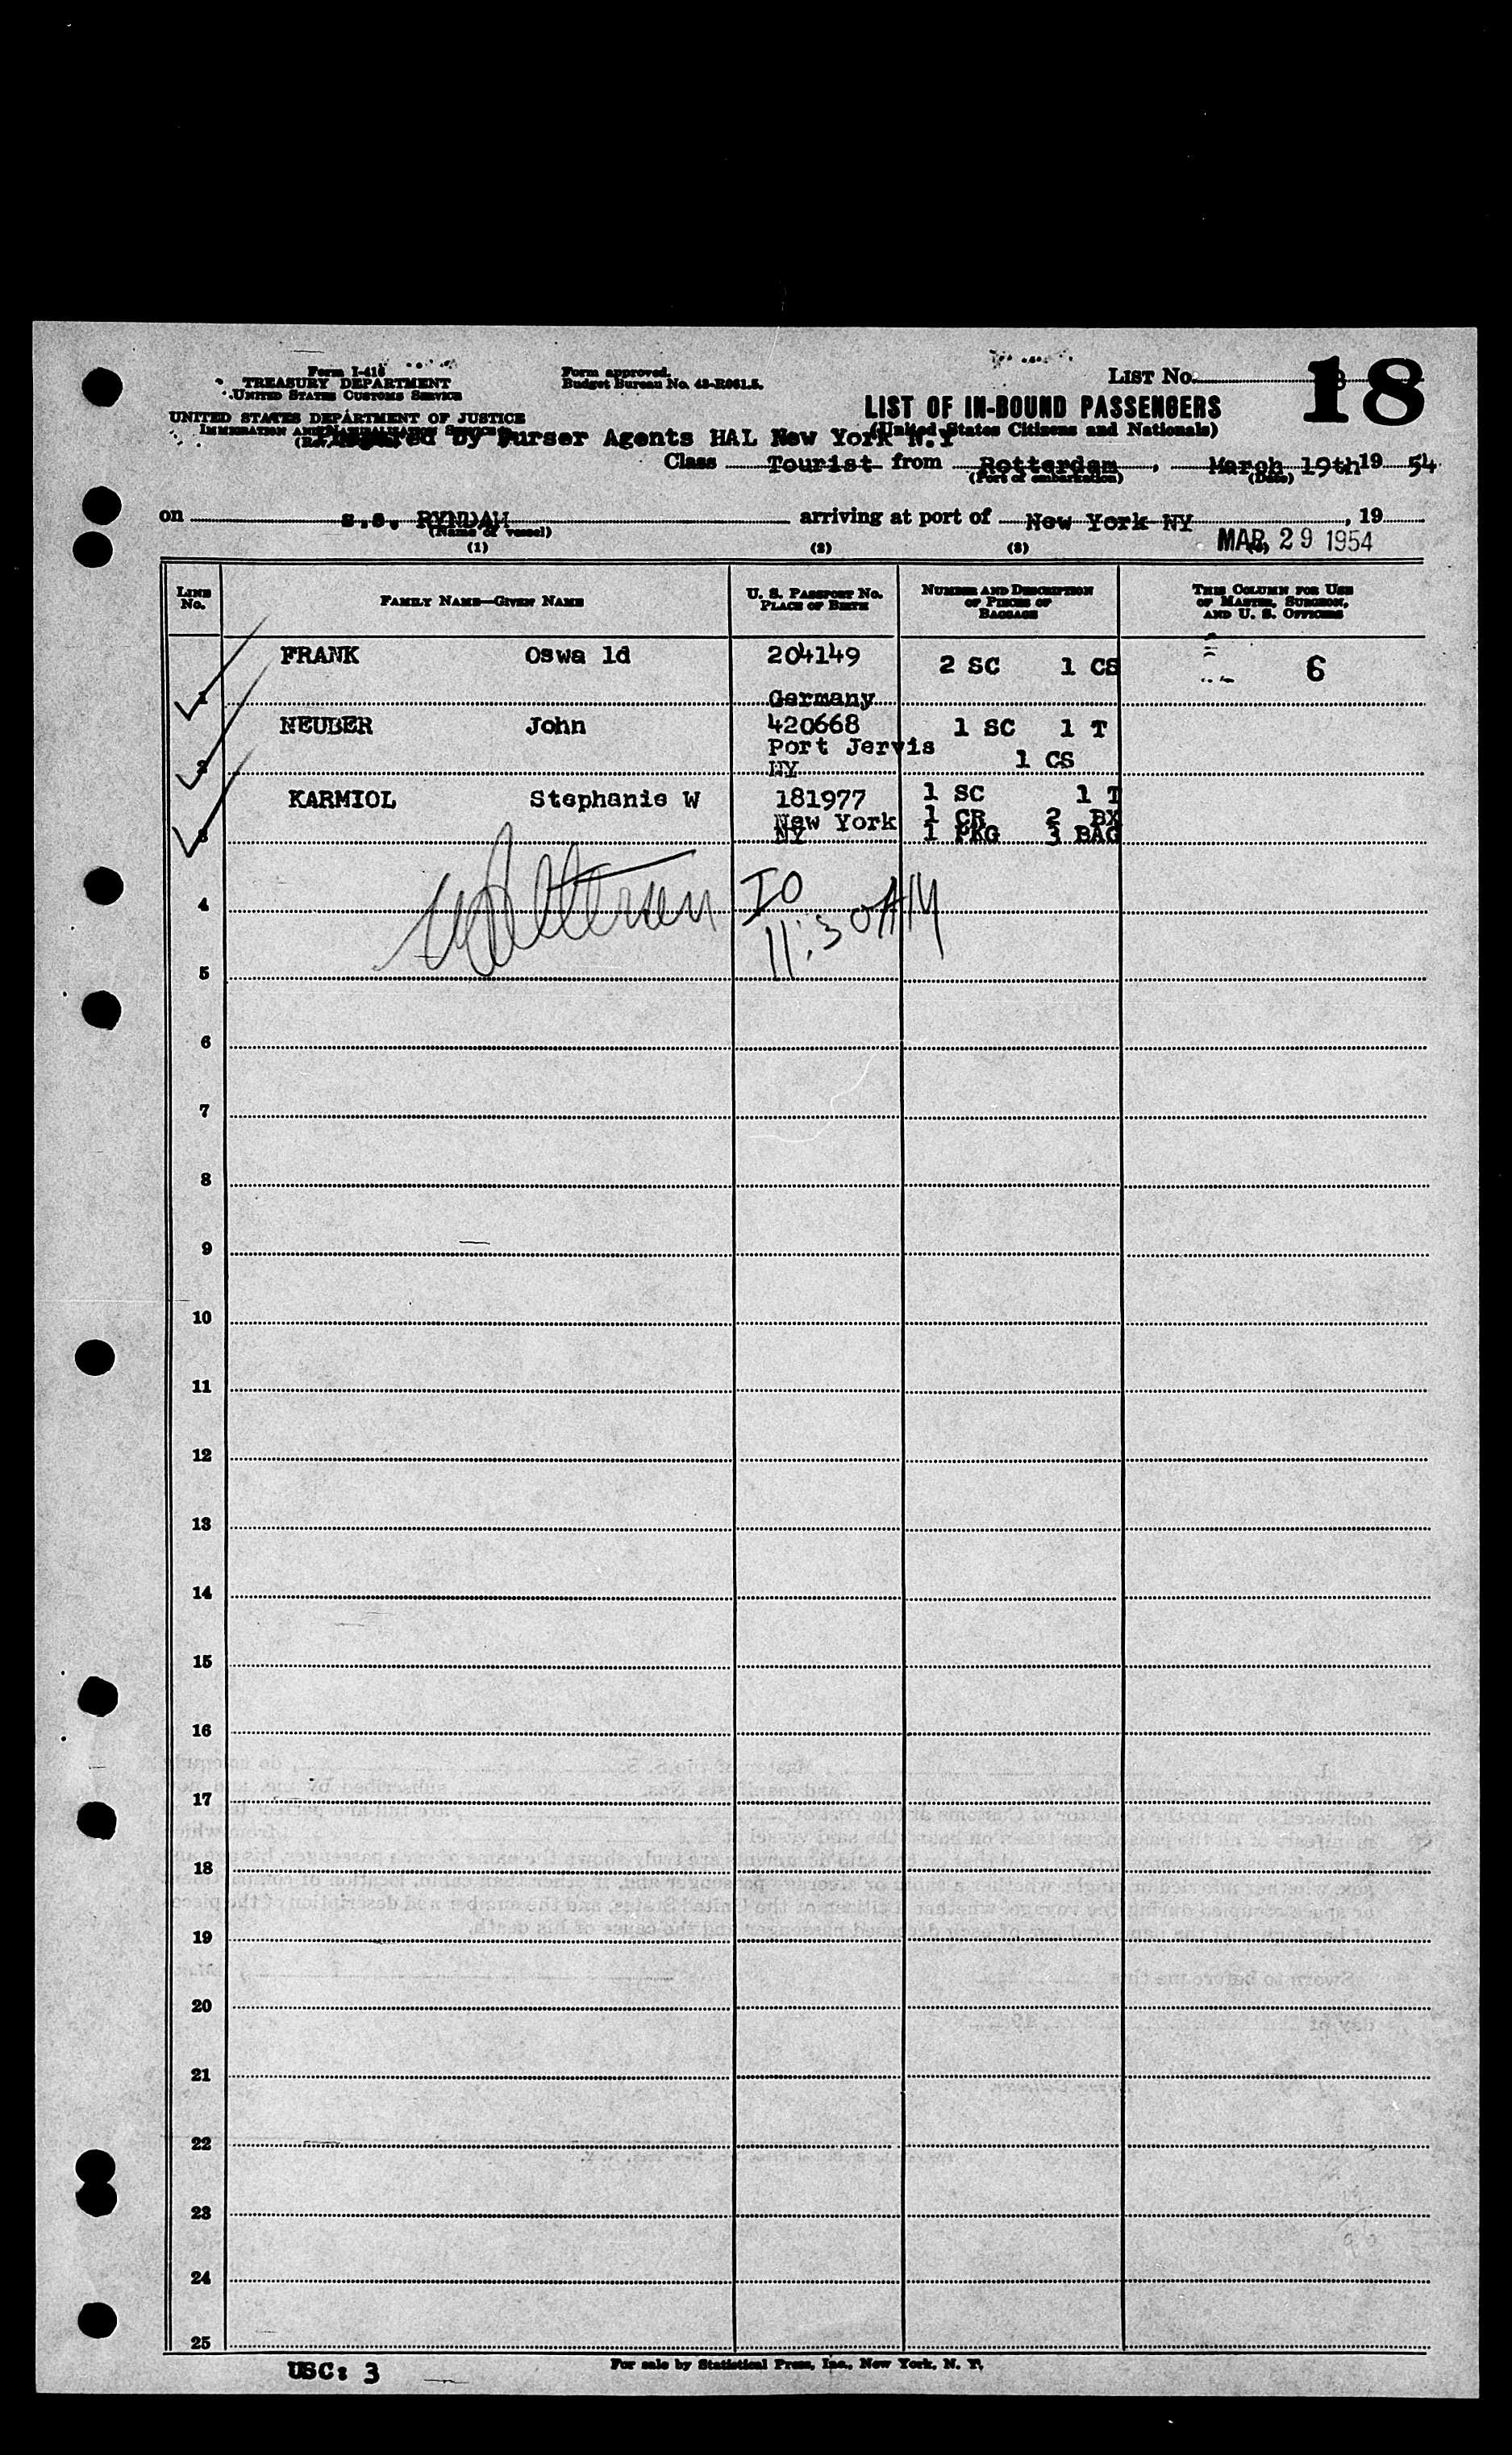 Form I-418
TREASURY DEPARTMENT
UNITED STATES CUSTOMS SERVICE
UNITED STATES DEPARTMENT OF JUSTICE
IMMIGRATION AND NATURALIZATION SERVICE
Form approved.
Budget Bureau No. 43-R061.5.
LIST No.
18
LIST OF IN-BOUND PASSENGERS
(United States Citizens and Nationals)
by Purser Agents HAL New York N.Y
Class Tourist from Rotterdam, March 19th 19 54
(Port of embarkation) (Date)
on s.s. RYNDAM arriving at port of New York NY, 19
(Name of vessel)
MAR 29 1954
(1) (2) (3)
LINE No.
FAMILY NAME—GIVEN NAME
U. S. PASSPORT No. PLACE OF BIRTH
NUMBER AND DESCRIPTION OF PIECES OF BAGGAGE
THIS COLUMN FOR USE OF MASTER, SURGEON, AND U. S. OFFICERS
FRANK Oswa ld 204149 2 SC 1 CS 6
1 Germany
NEUBER John 420668 1 SC 1 T
Port Jervis 1 CS
2 NY
KARMIOL Stephanie W 181977 1 SC 1 T
New York 1 CR 2 BX
3 NY 1 PKG 3 BAG
4 IO
11:30AM
5
6
7
8
9
10
11
12
13
14
15
16
17
18
19
20
21
22
23
24
25
USC: 3
For sale by Statistical Press, Inc., New York, N. Y.